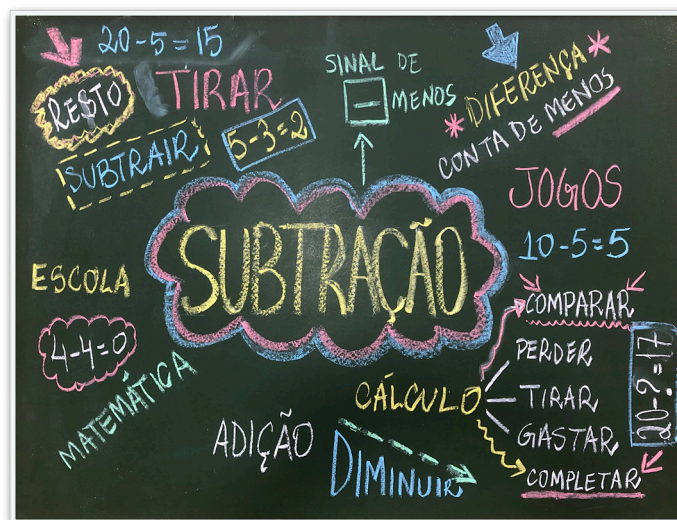 20-5=15
RESTO
TIRAR
SUBTRAIR
5-3=2
SINAL DE
- MENOS
* DIFERENÇA *
CONTA DE MENOS
JOGOS
10-5=5
SUBTRAÇÃO
ESCOLA
4-4=0
MATEMÁTICA
ADIÇÃO
DIMINUIR
CÁLCULO
COMPARAR
PERDER
TIRAR
GASTAR
COMPLETAR
20-?=17